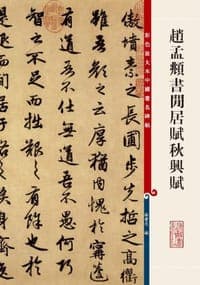 趙孟頫書閒居賦秋興賦
彩色放大本中國著名碑帖
孫寶文 編
傲墳素之長圃步先哲之高衢
雖吾顏之云厚猶內愧於甯蘧
有道吾不仕無道吾不愚何巧
智之不足而拙艱之有餘也於
是退而閒居于洛之涘